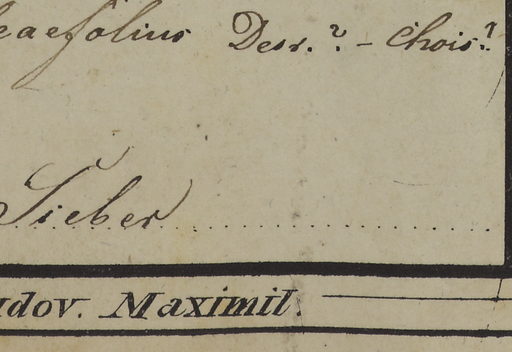 eaefolius Desr.? - Chois.?
Sieber
udov. Maximil.